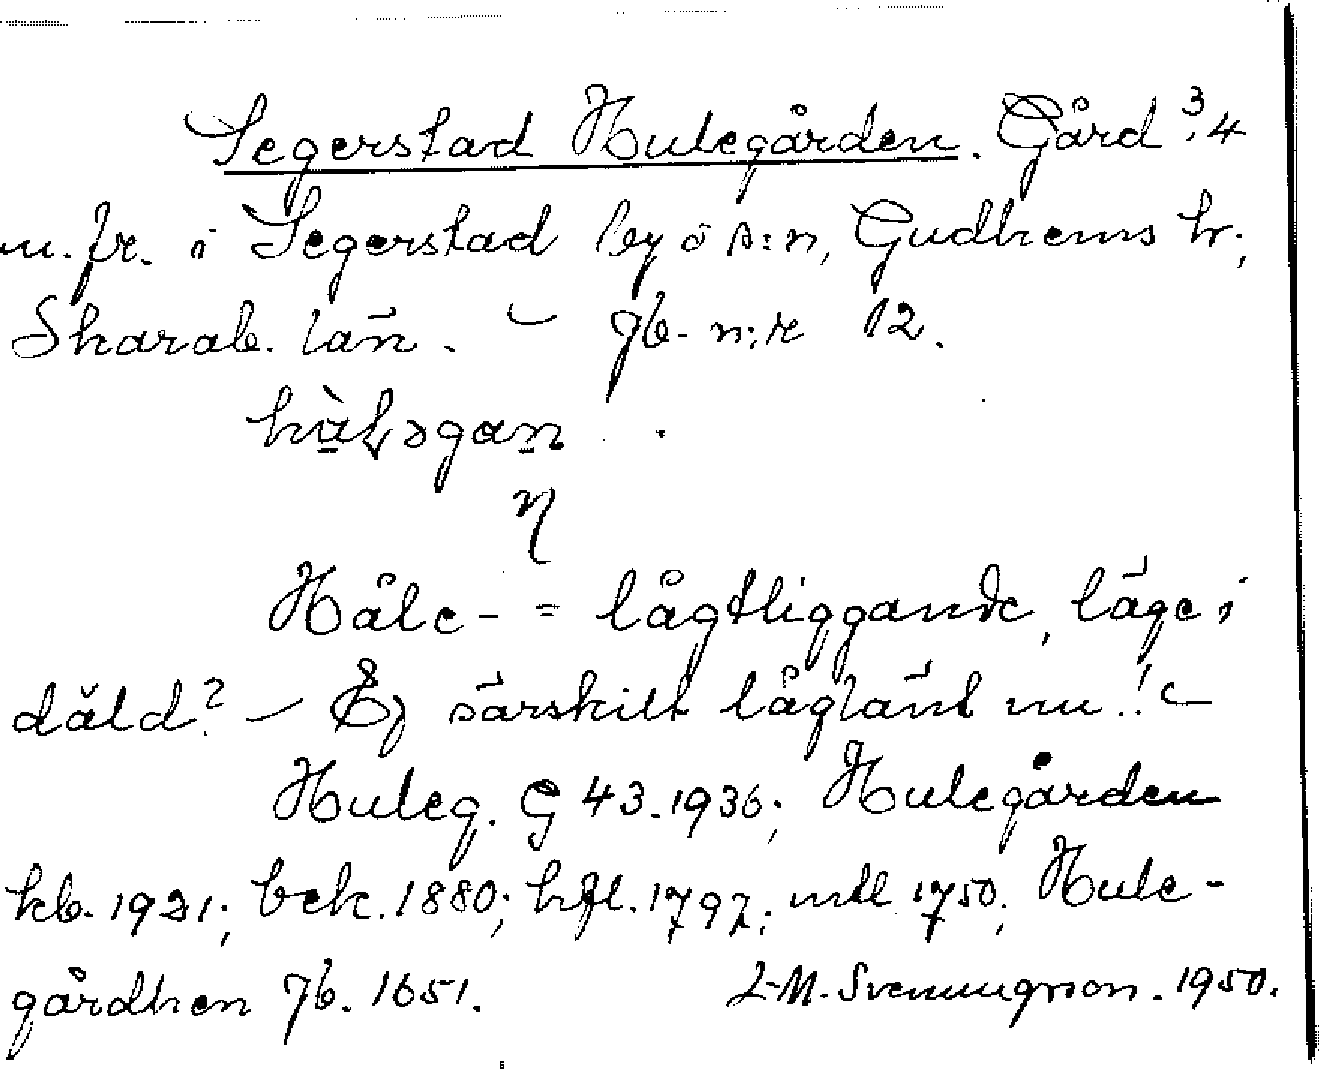 Segerstad Hulegården. Gård 3:4
m. fr. i Segerstad by o s:n, Gudhems hr;
Skarab. län. – Jb. n:r 12.
Håle- = lågtliggande, läge i
däld? – Ej särskilt låglänt nu!! –
Huleg. G 43. 1936; Hulegården
kb. 1921; bek. 1880; hfl. 1797; mtl 1750; Hule-
gårdhen Jb. 1651. L-M. Svenungsson. 1950.